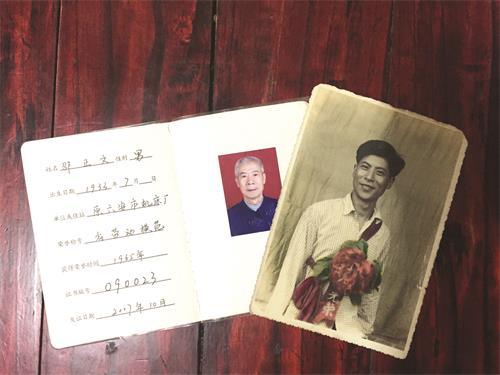 姓名 邓正文 性别 男
出生日期 1934年7月 日
单位及住址 原六安市机床厂
荣誉称号 省劳动模范
获得荣誉时间 1965年
证书编号 090023
发证日期 2007年10月